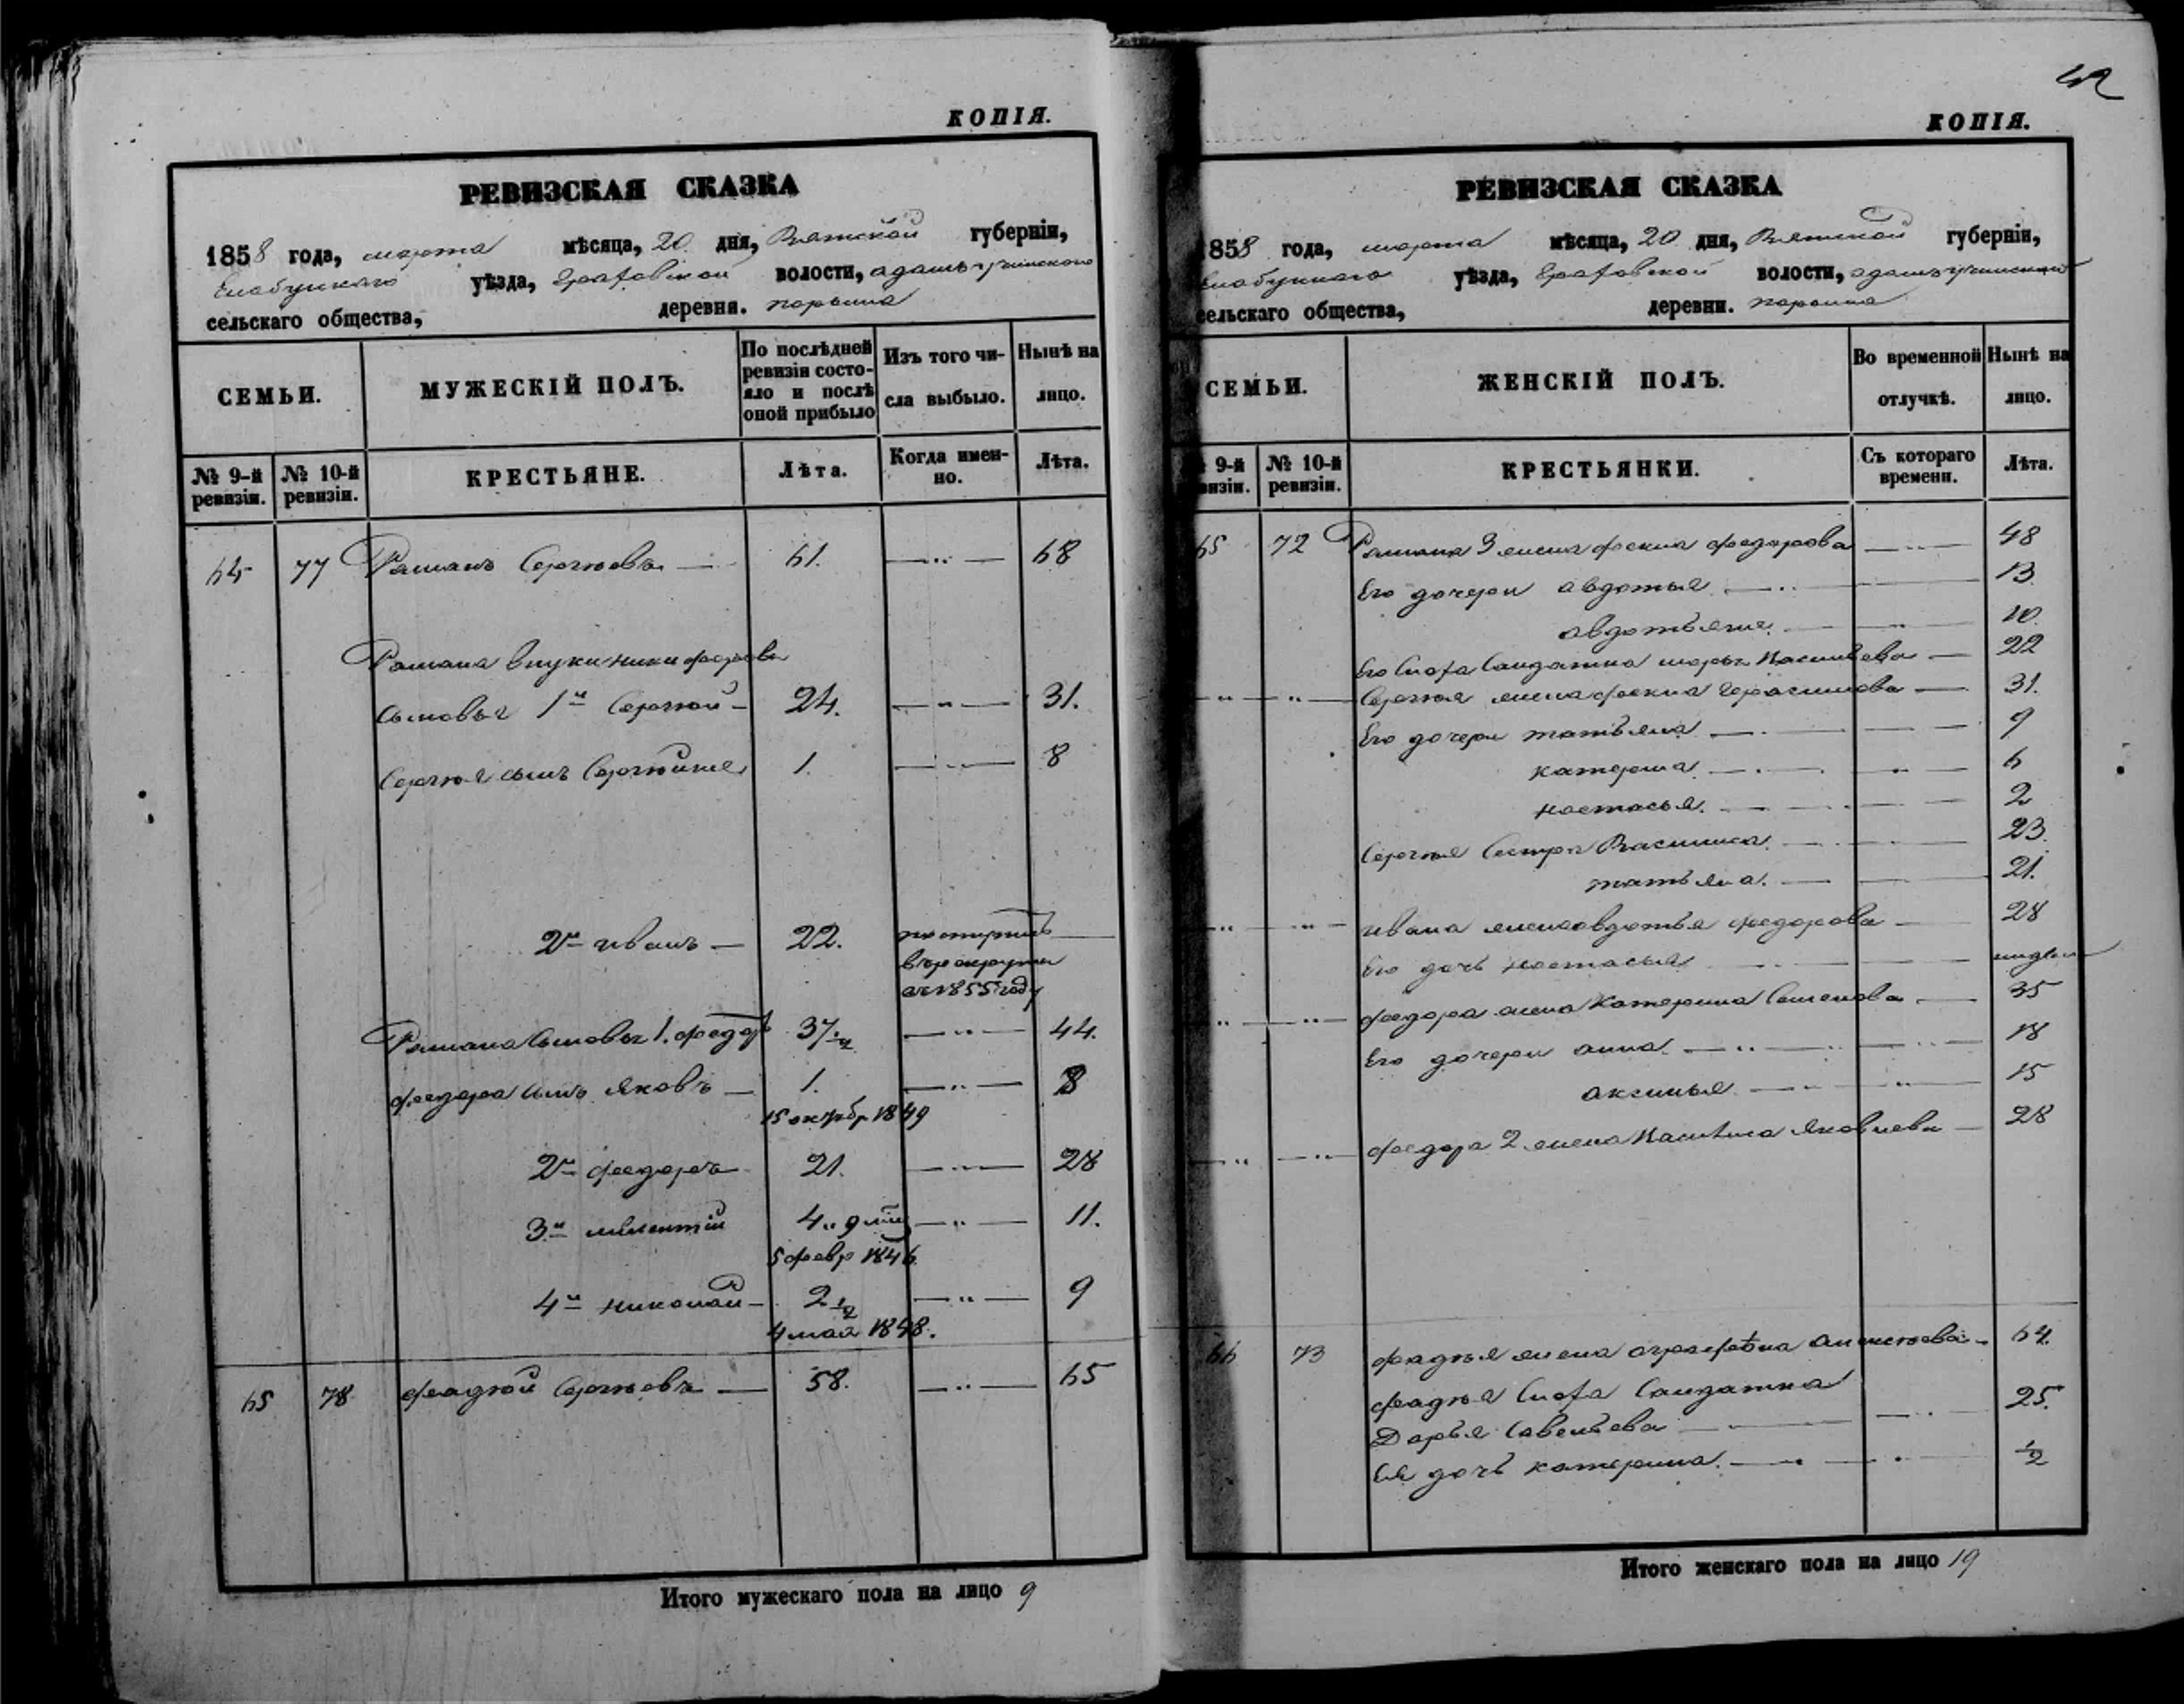 КОПІЯ.
РЕВИЗСКАЯ СКАЗКА
1858 года, марта мѣсяца, 20 дня, Вятской губерніи,
Елабускаго уѣзда, Граховской волости,
сельскаго общества, деревни.
СЕМЬИ.
МУЖЕСКІЙ ПОЛЪ.
По послѣдней ревизіи состояло и послѣ оной прибыло
Изъ того числа выбыло.
Нынѣ на лицо.
№ 9-й ревизіи.
№ 10-й ревизіи.
КРЕСТЬЯНЕ.
Лѣта.
Когда именно.
Лѣта.
64 77 Романъ Сергѣевъ 61. 68
Романа внуки Никифоровы
сыновья 1й Сергѣй 24. 31.
Сергѣя сынъ 1. 8
2й Иванъ 22. поступилъ
в рекруты
въ 1855 году
Романа сыновья 1. Федоръ 37 1/2 44.
Федора сынъ Яковъ 1. 8
15 октябр 1849
2й Федоръ 21. 28
3й милентій 4 " 9 мѣс 11.
5 февр 1846
4й Николай 2 1/2 9
4 мая 1848.
65 78 Фадѣй Сергѣевъ 58. 65
Итого мужескаго пола на лицо 9
42
КОПІЯ.
РЕВИЗСКАЯ СКАЗКА
1858 года, марта мѣсяца, 20 дня, Вятской губерніи,
Елабускаго уѣзда, Граховской волости,
сельскаго общества, деревни.
СЕМЬИ.
ЖЕНСКІЙ ПОЛЪ.
Во временной отлучкѣ.
Нынѣ на лицо.
№ 9-й ревизіи.
№ 10-й ревизіи.
КРЕСТЬЯНКИ.
Съ котораго времени.
Лѣта.
65 72 Романа 3 жена фекла федорова 48
Его дочери авдотья 13.
10.
Его сноха солдатка марья 22
Сергѣя жена фекла Герасимова 31.
Его дочери татьяна 9
катерина 6
настасья. 2
Сергѣя сестра Василиса 23.
татьяна. 21.
Ивана жена авдотья федорова 28
Его дочь настасья
федора жена катерина Семенова 35
Его дочери анна 18
аксинья 15
федора 2 жена Яковлева 28
66 73 фадѣя жена 64.
фадѣя сноха солдатка
Дарья Савельева 25.
Ея дочь катерина. 1/2
Итого женскаго пола на лицо 19